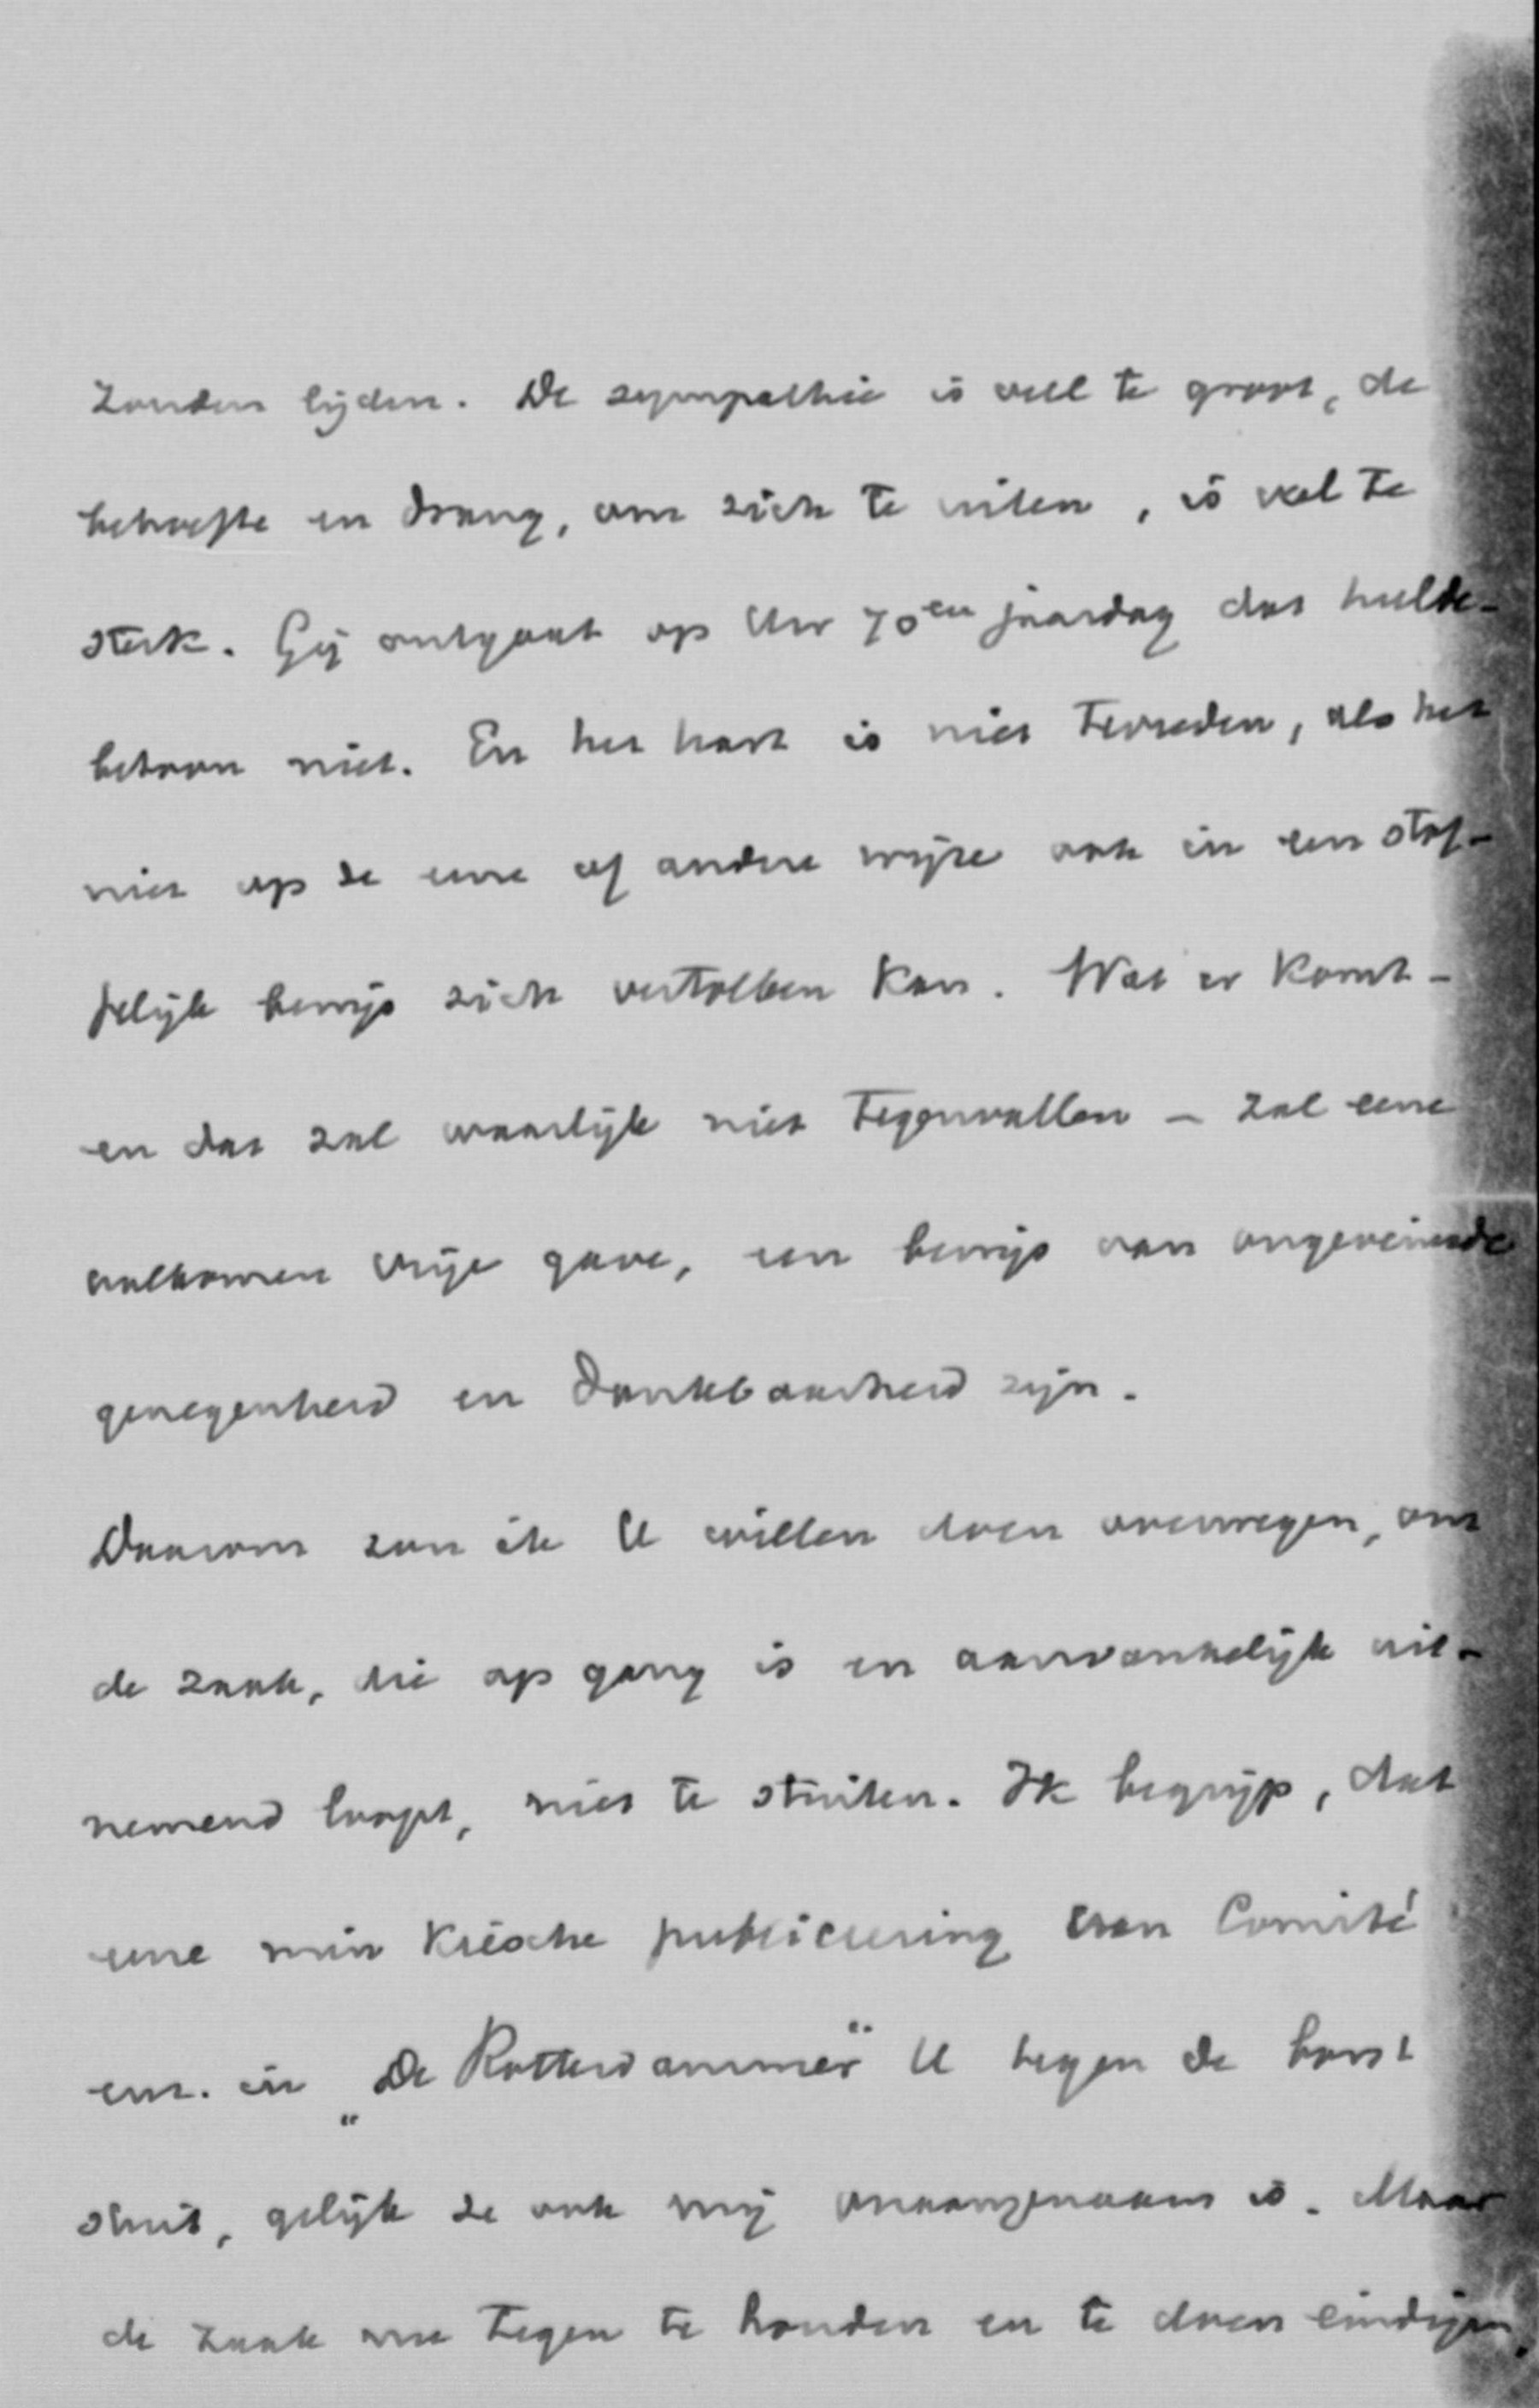 zouden lijden. De sympathie is veel te groot, de
behoefte en drang, om zich te uiten, is veel te
sterk. Gij ontgaat op Uw 70en jaardag dat hulde-
betoon niet. En het hart is niet tevreden, als het
niet op de eene of andere wijze ook in een stof-
felijk bewijs zich vertolken kan. Wat er komt -
en dat zal waarlijk niet tegenvallen - zal eene
volkomen vrije gave, een bewijs van ongeveinsde
genegenheid en dankbaarheid zijn.
Daarom zou ik U willen doen overwegen, om
de zaak, die op gang is en aanvankelijk uit-
nemend loopt, niet te stuiten. Ik begrijp, dat
eene min kiesche publiceering van Comité
enz. in „De Rotterdammer" U tegen de borst
stuit, gelijk ze ook mij onaangenaam is. Maar
de zaak nu tegen te houden en te doen eindigen,